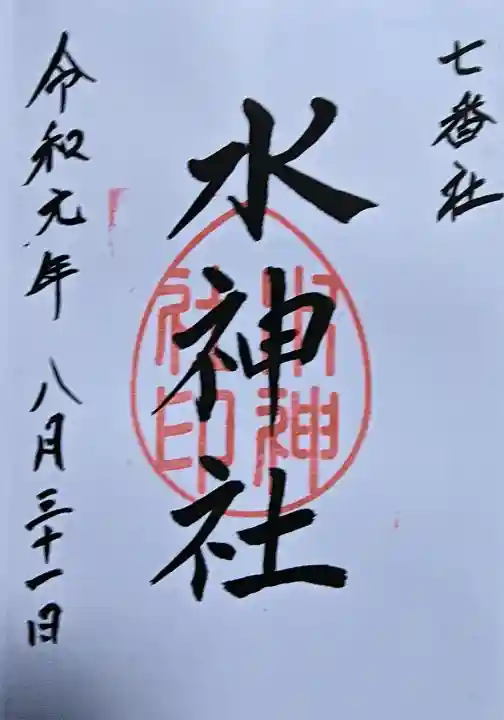 七番社
水神社
水神
社印
令和元年 八月三十一日